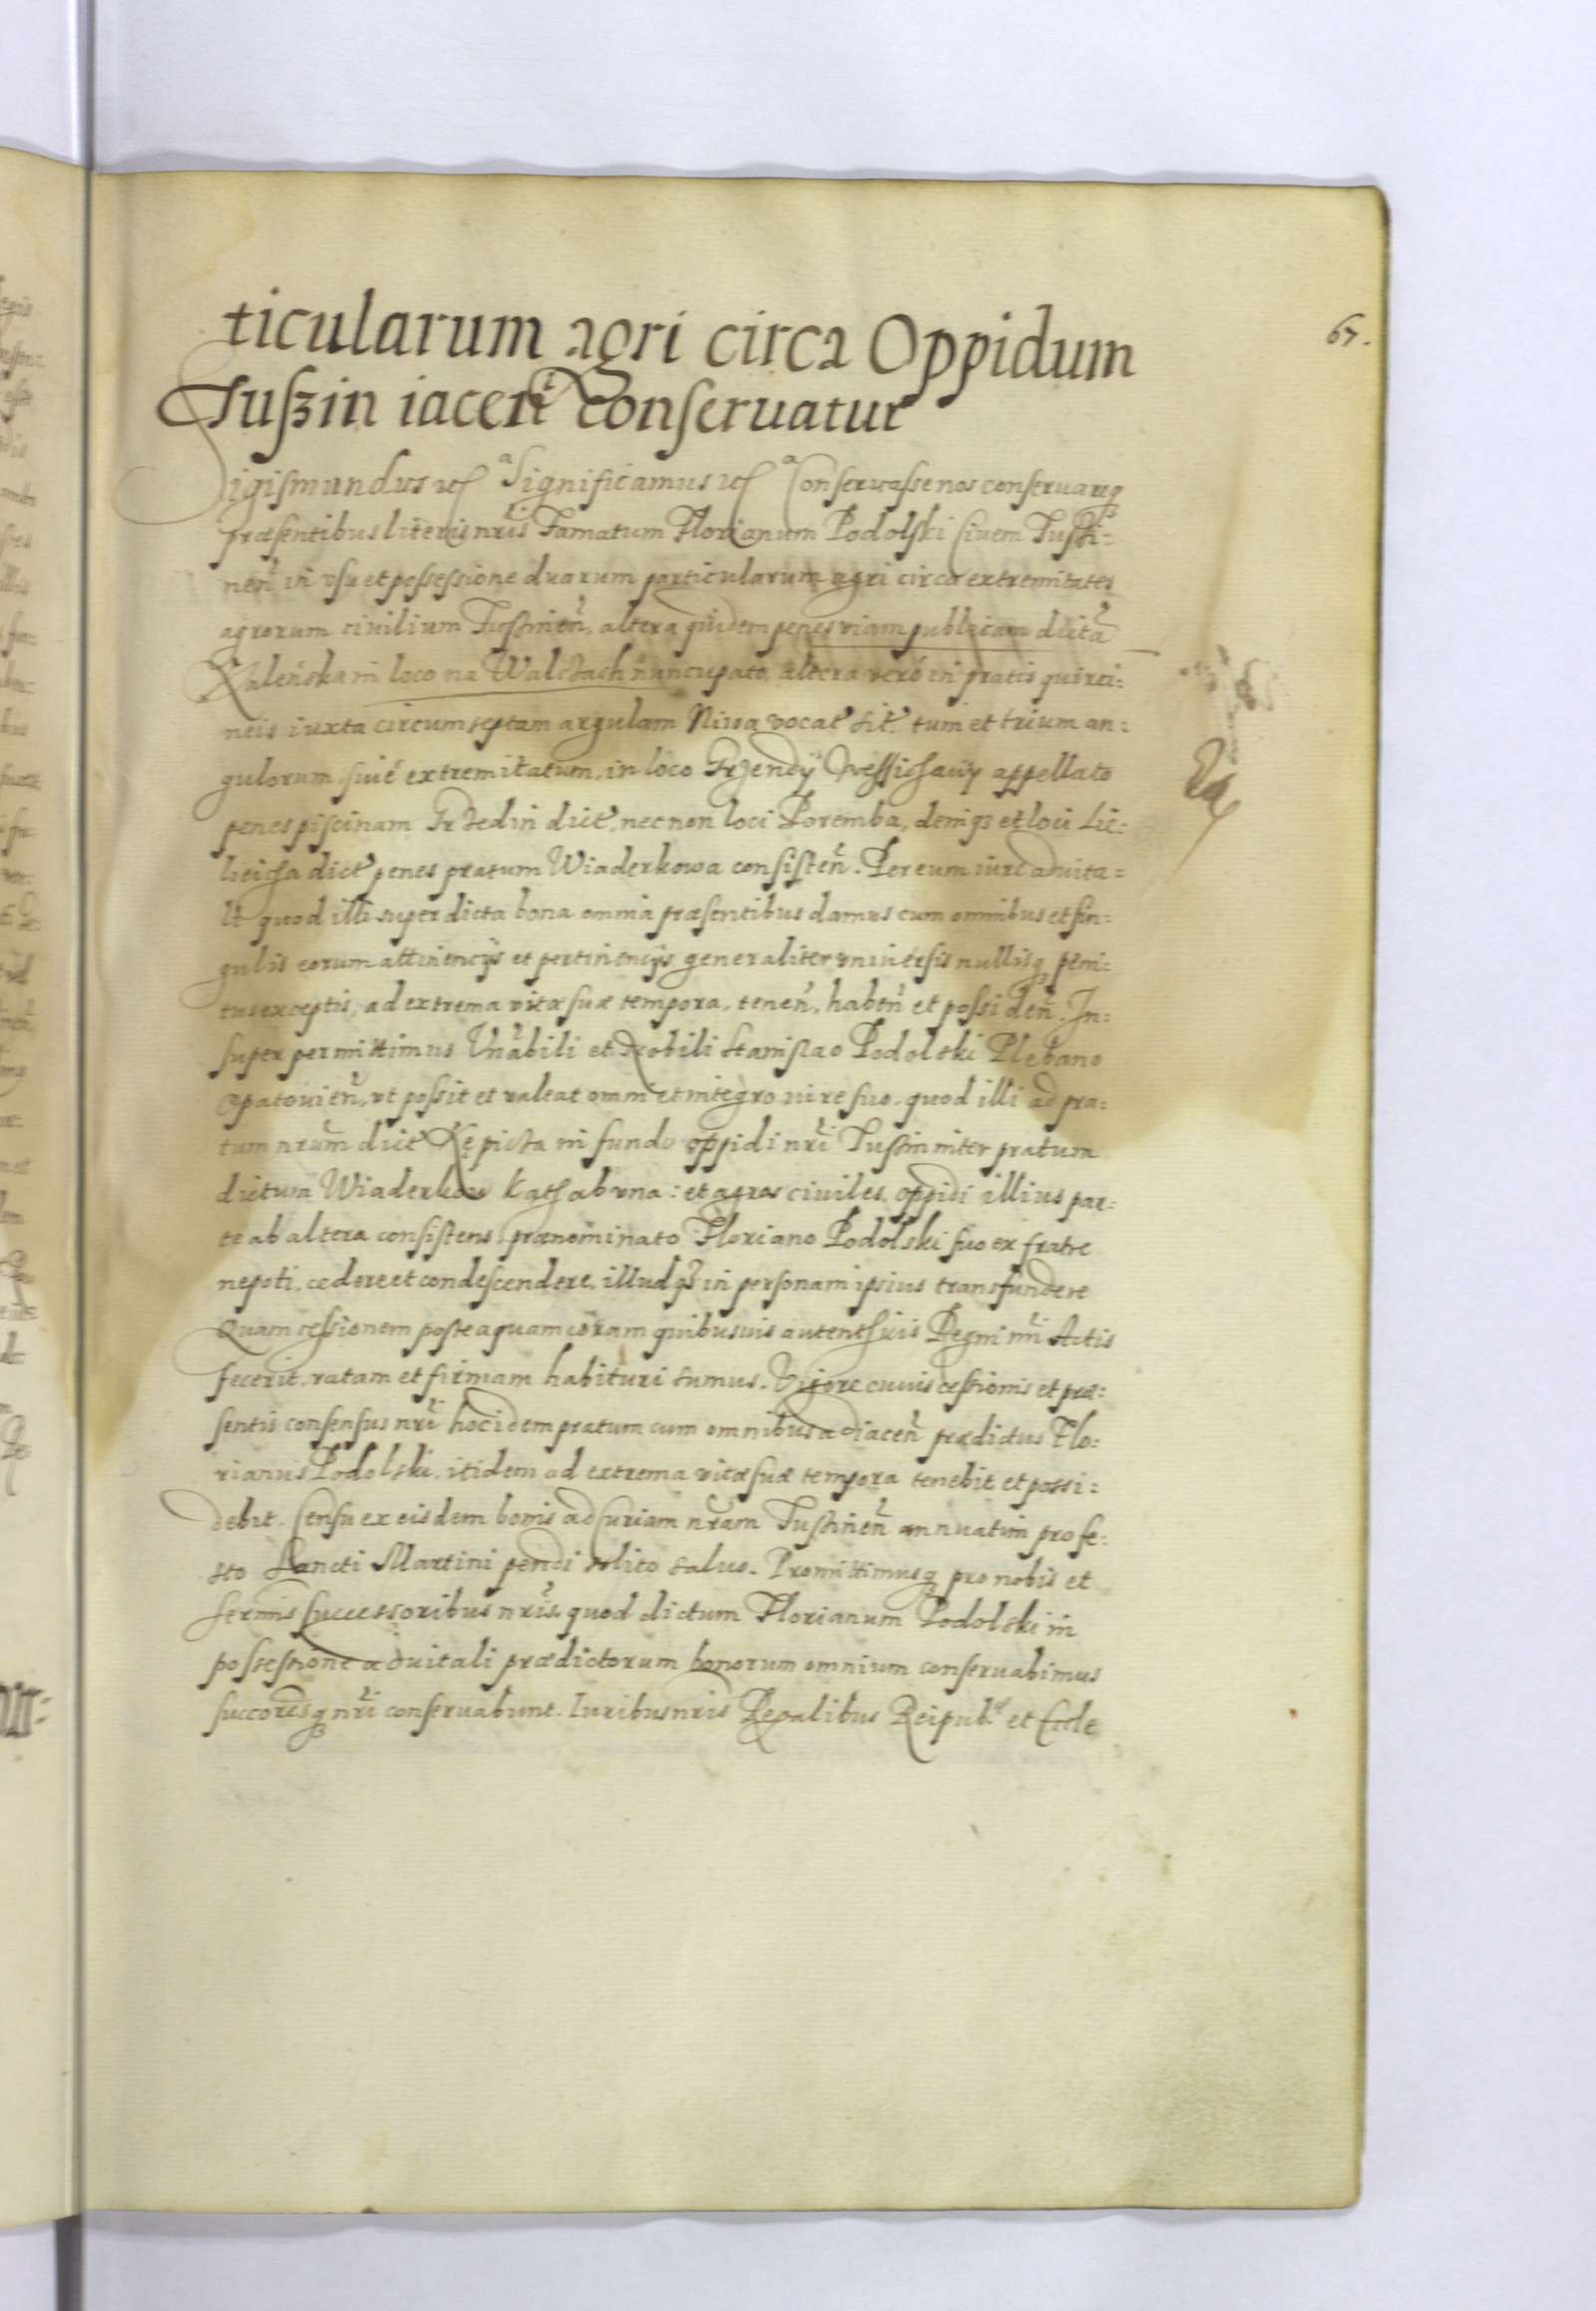 67.
ticularum agri circa Oppidum
Tuszin iaceñ conseruatur
Sigismundus etc Significamus etc Conseruasse nos conseruareq
præsentibus literis nr̃is Famatum Florianum Podolski Ciuem Tusti-
neñ in vsu et possessione duarum particularum agri circa extremitates
agrorum ciuilium Tustineñ, altera quidem penes viam publicam dicta
Kaleńska in loco na nuncupato altera verò in pratis
neis iuxta circumseptam argulam Niwa vocat̃ sit̃. tum et trium an-
gulorum siué extremitatum, in loco appellato
penes piscinam dict̃, necnon loci Poremba, deniq3 et loci Lic-
dict̃ penes pratum Wiaderkowa consisteñ. Per eum iure aduita-
li quod illi super dicta bona omnia præsentibus damus cum omnibus et sin-
gulis eorum attinencijs et pertinencijs generaliter vniuersis nullisq peni-
tus exceptis, ad extrema vitæ suæ tempora, teneñ, habeñ et possideñ. In-
super permittimus Vn̄abili et Nobili Stanislao Podolski Plebano
Opatouieñ, vt possit et valeat omni et integro iure suo, quod illi ad pra-
tum nrũm dict̃ Kępista in fundo oppidi nr̃i Tustin inter pratum
dictum Wiaderkow ab vna: et agros ciuiles, oppidi illius par-
te ab altera consistens, prænominato Floriano Podolski suo ex fratre
nepoti, cedere et condescendere, illudq3 in personam ipsius transfundere
Quam cessionem posteaquam coram quibusuis autenthicis Regni nr̃i Actis
fecerit, ratam et firmam habituri sumus. Vigore cuius cessionis et præ-
sentis consensus nr̃i hoc idem pratum cum omnibus adiaceñ prædictus Flo-
rianus Podolski, itidem ad extrema vitæ suæ tempora tenebit et possi-
debit. Censu ex eisdem bonis ad Curiam nr̃am Tustineñ annuatim pro fe-
sto Sancti Martini pendi solito saluo. Promittimusq pro nobis et
Sermis Successoribus nr̃is, quod dictum Florianum Podolski in
possessione aduitali prædictorum bonorum omnium conseruabimus
succoresq nr̃i conseruabunt. Iuribus nr̃is Regalibus Reipub. et Eccle